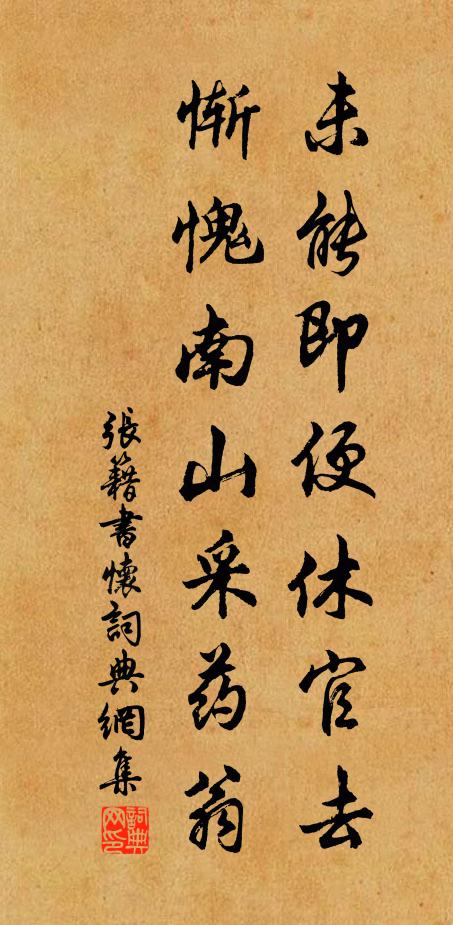 未能即便休官去
惭愧南山采药翁
張籍書懷詞典網集
詞典网印